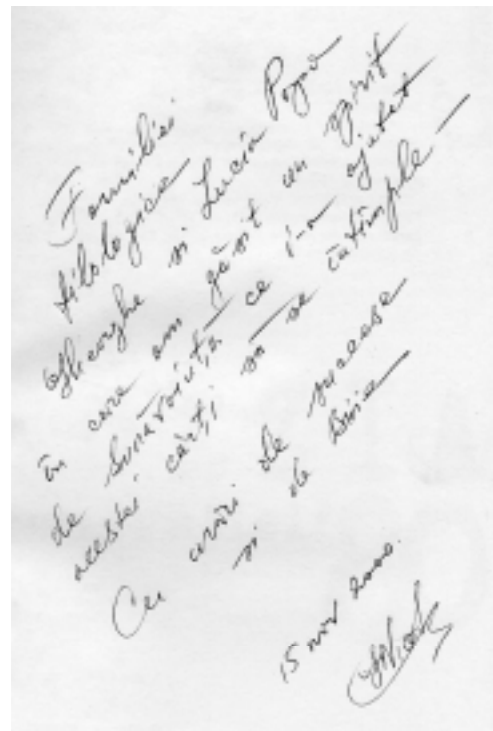 Familiei
filologice
Gheorghe și Lucia Popa
în care am găsit un spirit
de bunăvoință ce i-a ajutat
acestei cărți să se întîmple –
Cu urări de succese
și de bine
15 nov 2000.